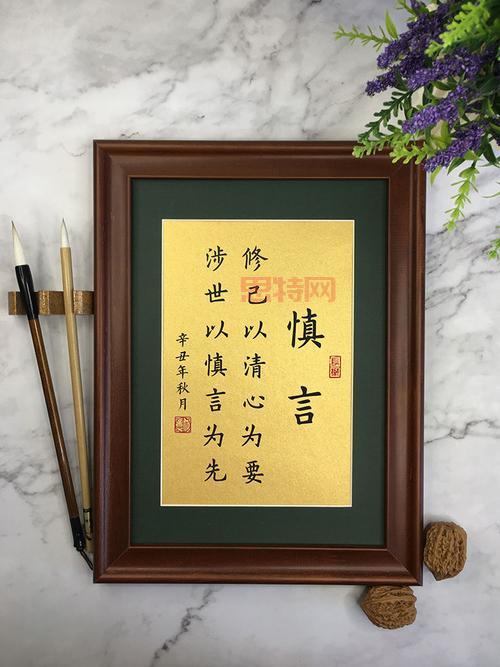 慎言
修己以清心为要
涉世以慎言为先
辛丑年秋月
思特网